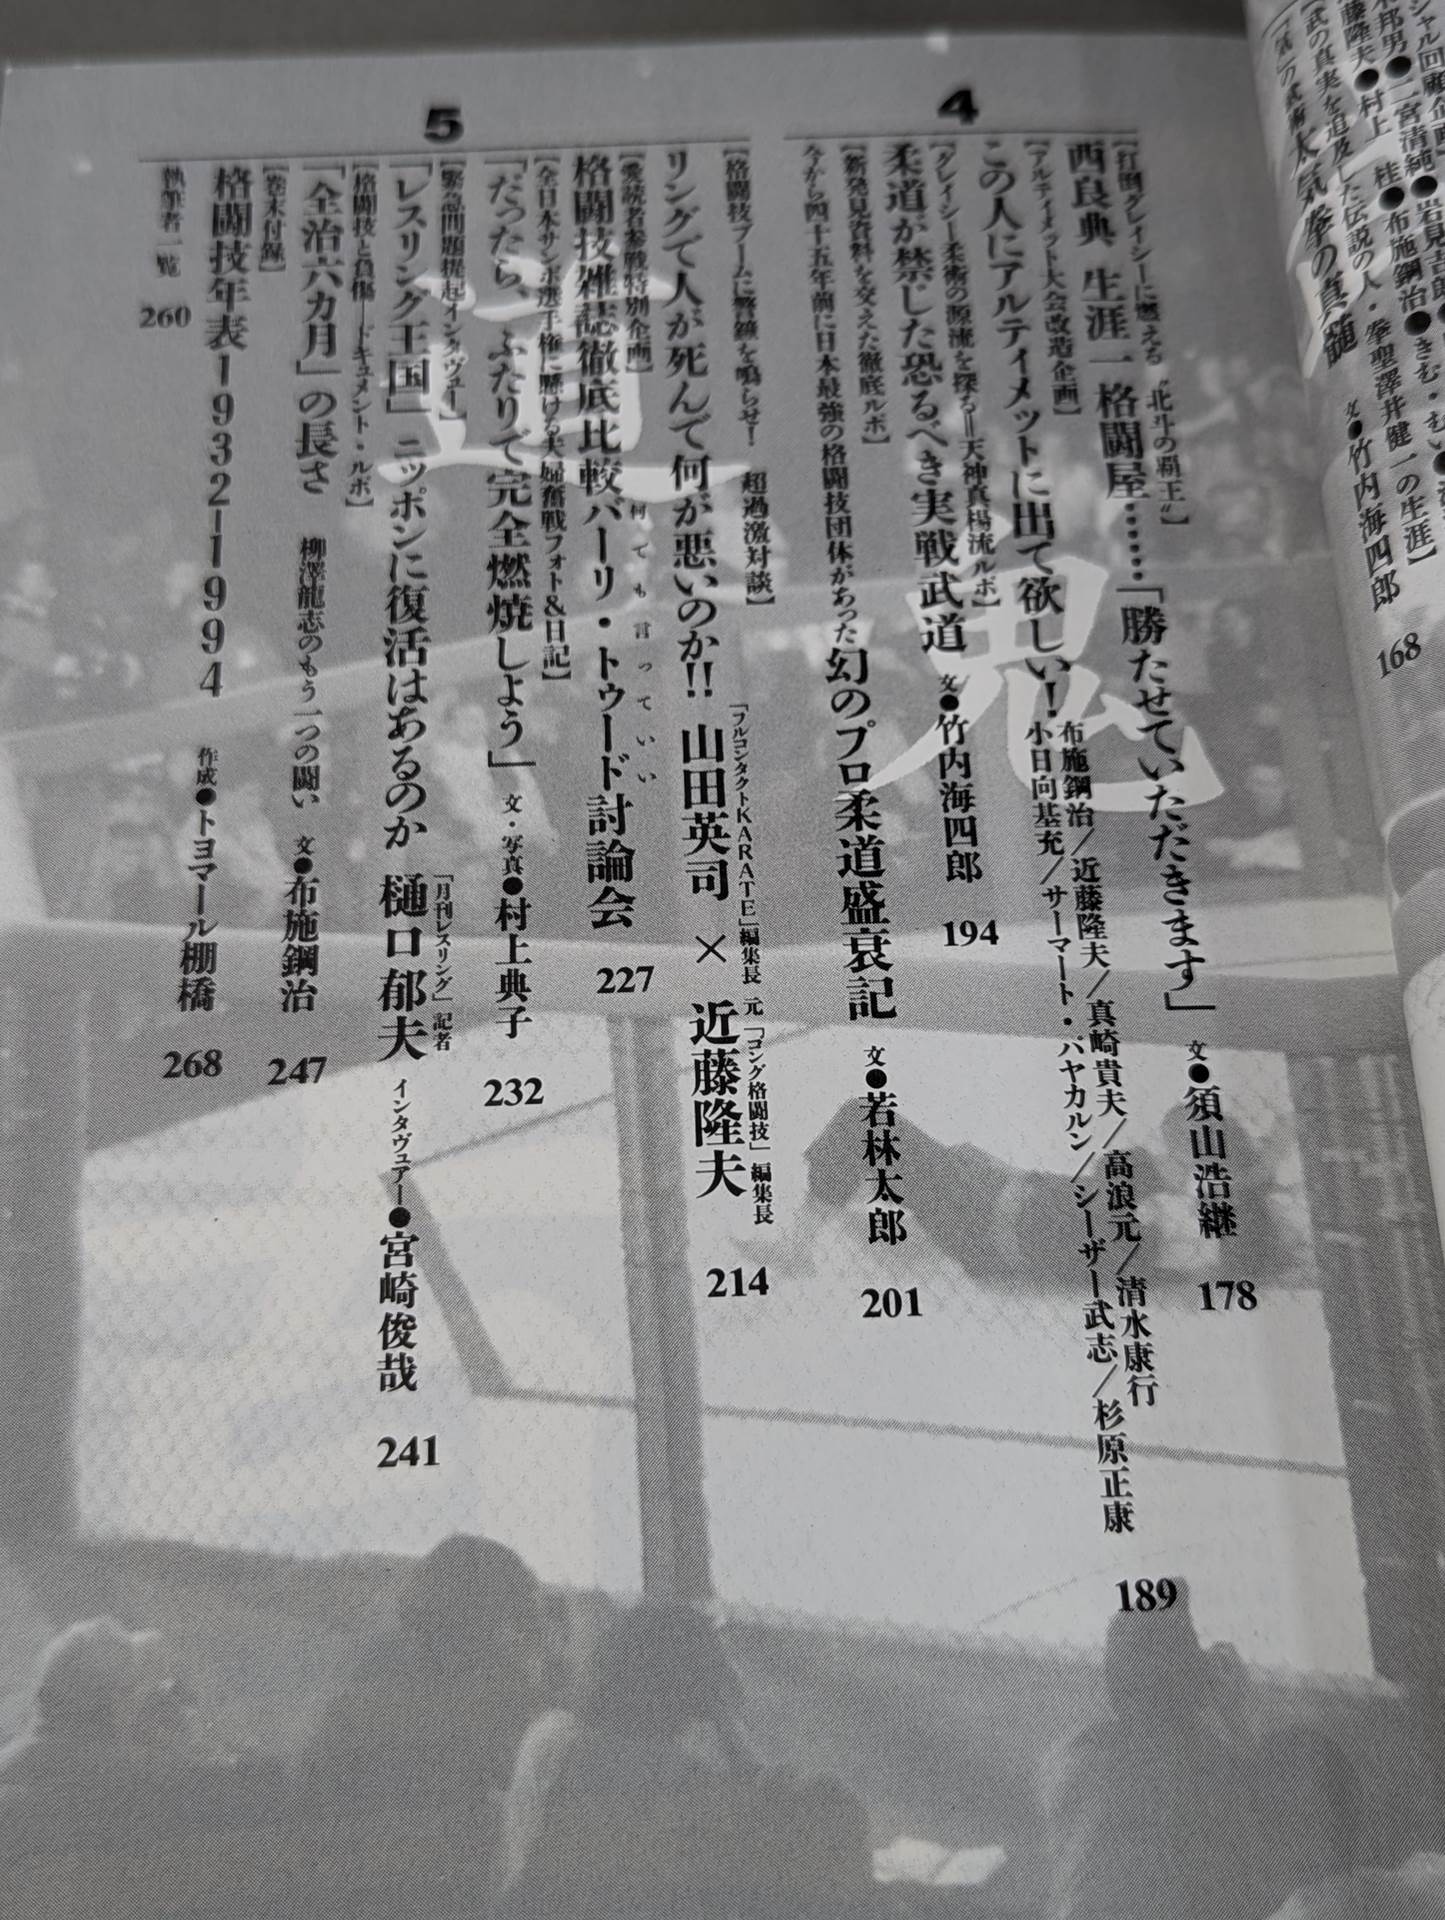 藤隆夫●村上 桂●布施鋼治●きむ・むい●
【武の真実を追及した伝説の人・拳聖澤井健一の生涯】
太気拳の真髄 文●竹内海四郎 168
4
【打倒グレイシーに燃える“北斗の覇王”】
西良典 生涯一格闘屋……「勝たせていただきます」 文●須山浩継 178
【アルティメット大会改造企画】
この人にアルティメットに出て欲しい!
布施鋼治/近藤隆夫/真崎貴夫/高浪元/清水康行
小日向基充/サーマート・パヤカルン/シーザー武志/杉原正康 189
【グレイシー柔術の源流を探る=天神真楊流ルポ】
柔道が禁じた恐るべき実戦武道 文●竹内海四郎 194
【新発見資料を交えた徹底ルポ】
今から四十五年前に日本最強の格闘技団体があった
幻のプロ柔道盛衰記 文●若林太郎 201
道
鬼
5
【格闘技ブームに警鐘を鳴らせ! 超過激対談】
リングで人が死んで何が悪いのか!!
「フルコンタクトKARATE」編集長 元「ゴング格闘技」編集長
山田英司 × 近藤隆夫 214
【愛読者参戦特別企画】
何でも言っていい
格闘技雑誌徹底比較バーリ・トゥード討論会 227
【全日本サンボ選手権に懸ける夫婦奮戦フォト&日記】
「だったら、ふたりで完全燃焼しよう」 文・写真●村上典子 232
【緊急問題提起インタヴュー】
「レスリング王国」ニッポンに復活はあるのか
「月刊レスリング」記者
樋口郁夫 インタヴュアー●宮崎俊哉 241
【格闘技と負傷——ドキュメント・ルポ】
「全治六カ月」の長さ 柳澤龍志のもう一つの闘い 文●布施鋼治 247
【巻末付録】
格闘技年表1932-1994 作成●トヨマール棚橋 268
執筆者一覧 260